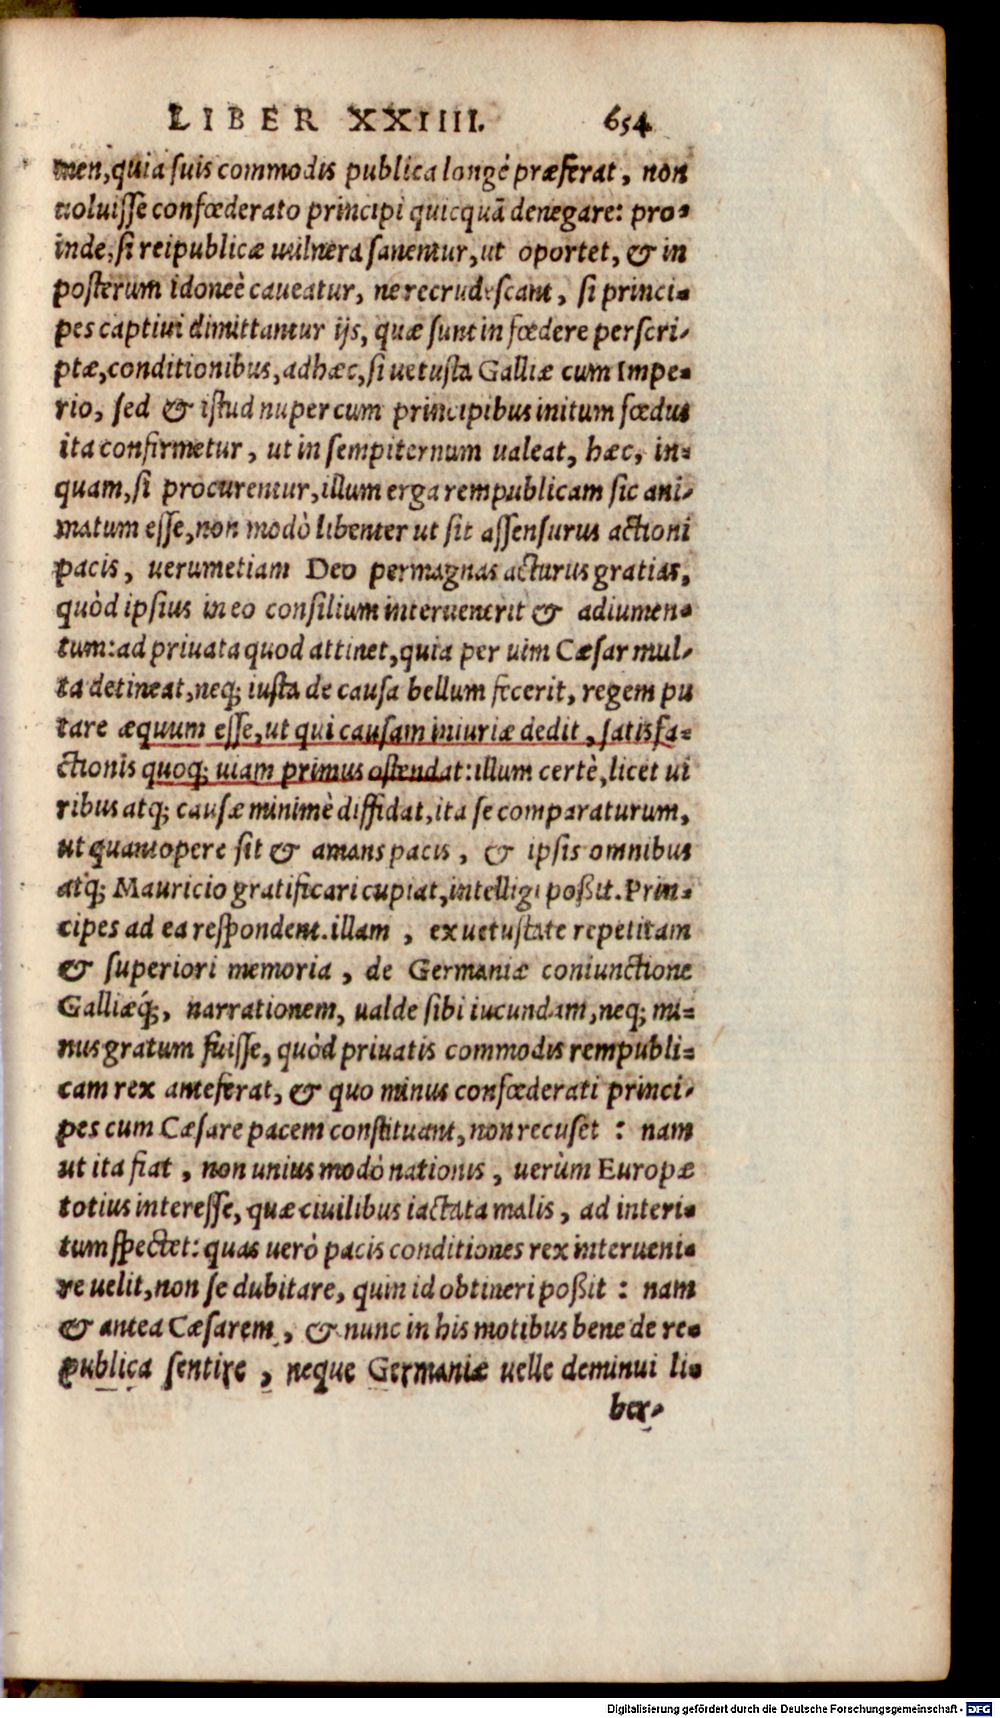 LIBER XXIIII. 654
men, quia suis commodis publica longè præferat, non
uoluisse confœderato principi quicquā denegare: pro-
inde, si reipublicæ uulnera sanentur, ut oportet, & in
posterum idoneè caueatur, ne recrudescant, si princi-
pes captiui dimittantur ijs, quæ sunt in fœdere perscri-
ptæ, conditionibus, ad hæc, si uetusta Galliæ cum Impe-
rio, sed & istud nuper cum principibus initum fœdus
ita confirmetur, ut in sempiternum ualeat, hæc, in-
quam, si procurentur, illum erga rempublicam sic ani-
matum esse, non modò libenter ut sit assensurus actioni
pacis, uerumetiam Deo permagnas acturus gratias,
quòd ipsius in eo consilium interuenerit & adiumen-
tum: ad priuata quod attinet, quia per uim Cæsar mul-
ta detineat, neq; iusta de causa bellum fecerit, regem pu
tare æquum esse, ut qui causam iniuriæ dedit, satisfa-
ctionis quoq; uiam primus ostendat: illum certè, licet ui
ribus atq; causæ minimè diffidat, ita se comparaturum,
ut quantopere sit & amans pacis, & ipsis omnibus
atq; Mauricio gratificari cupiat, intelligi poßit. Prin-
cipes ad ea respondent. illam, ex uetustate repetitam
& superiori memoria, de Germaniæ coniunctione
Galliæq́;, narrationem, ualde sibi iucundam, neq; mi-
nus gratum fuisse, quòd priuatis commodis rempubli-
cam rex anteferat, & quo minus confœderati princi-
pes cum Cæsare pacem constituant, non recuset : nam
ut ita fiat, non unius modò nationis, uerùm Europæ
totius interesse, quæ ciuilibus iactata malis, ad interi-
tum spectet: quas uerò pacis conditiones rex interueni-
re uelit, non se dubitare, quin id obtineri poßit : nam
& antea Cæsarem, & nunc in his motibus bene de re-
publica sentire, neque Germaniæ uelle deminui li-
ber-
Digitalisierung gefördert durch die Deutsche Forschungsgemeinschaft - DFG